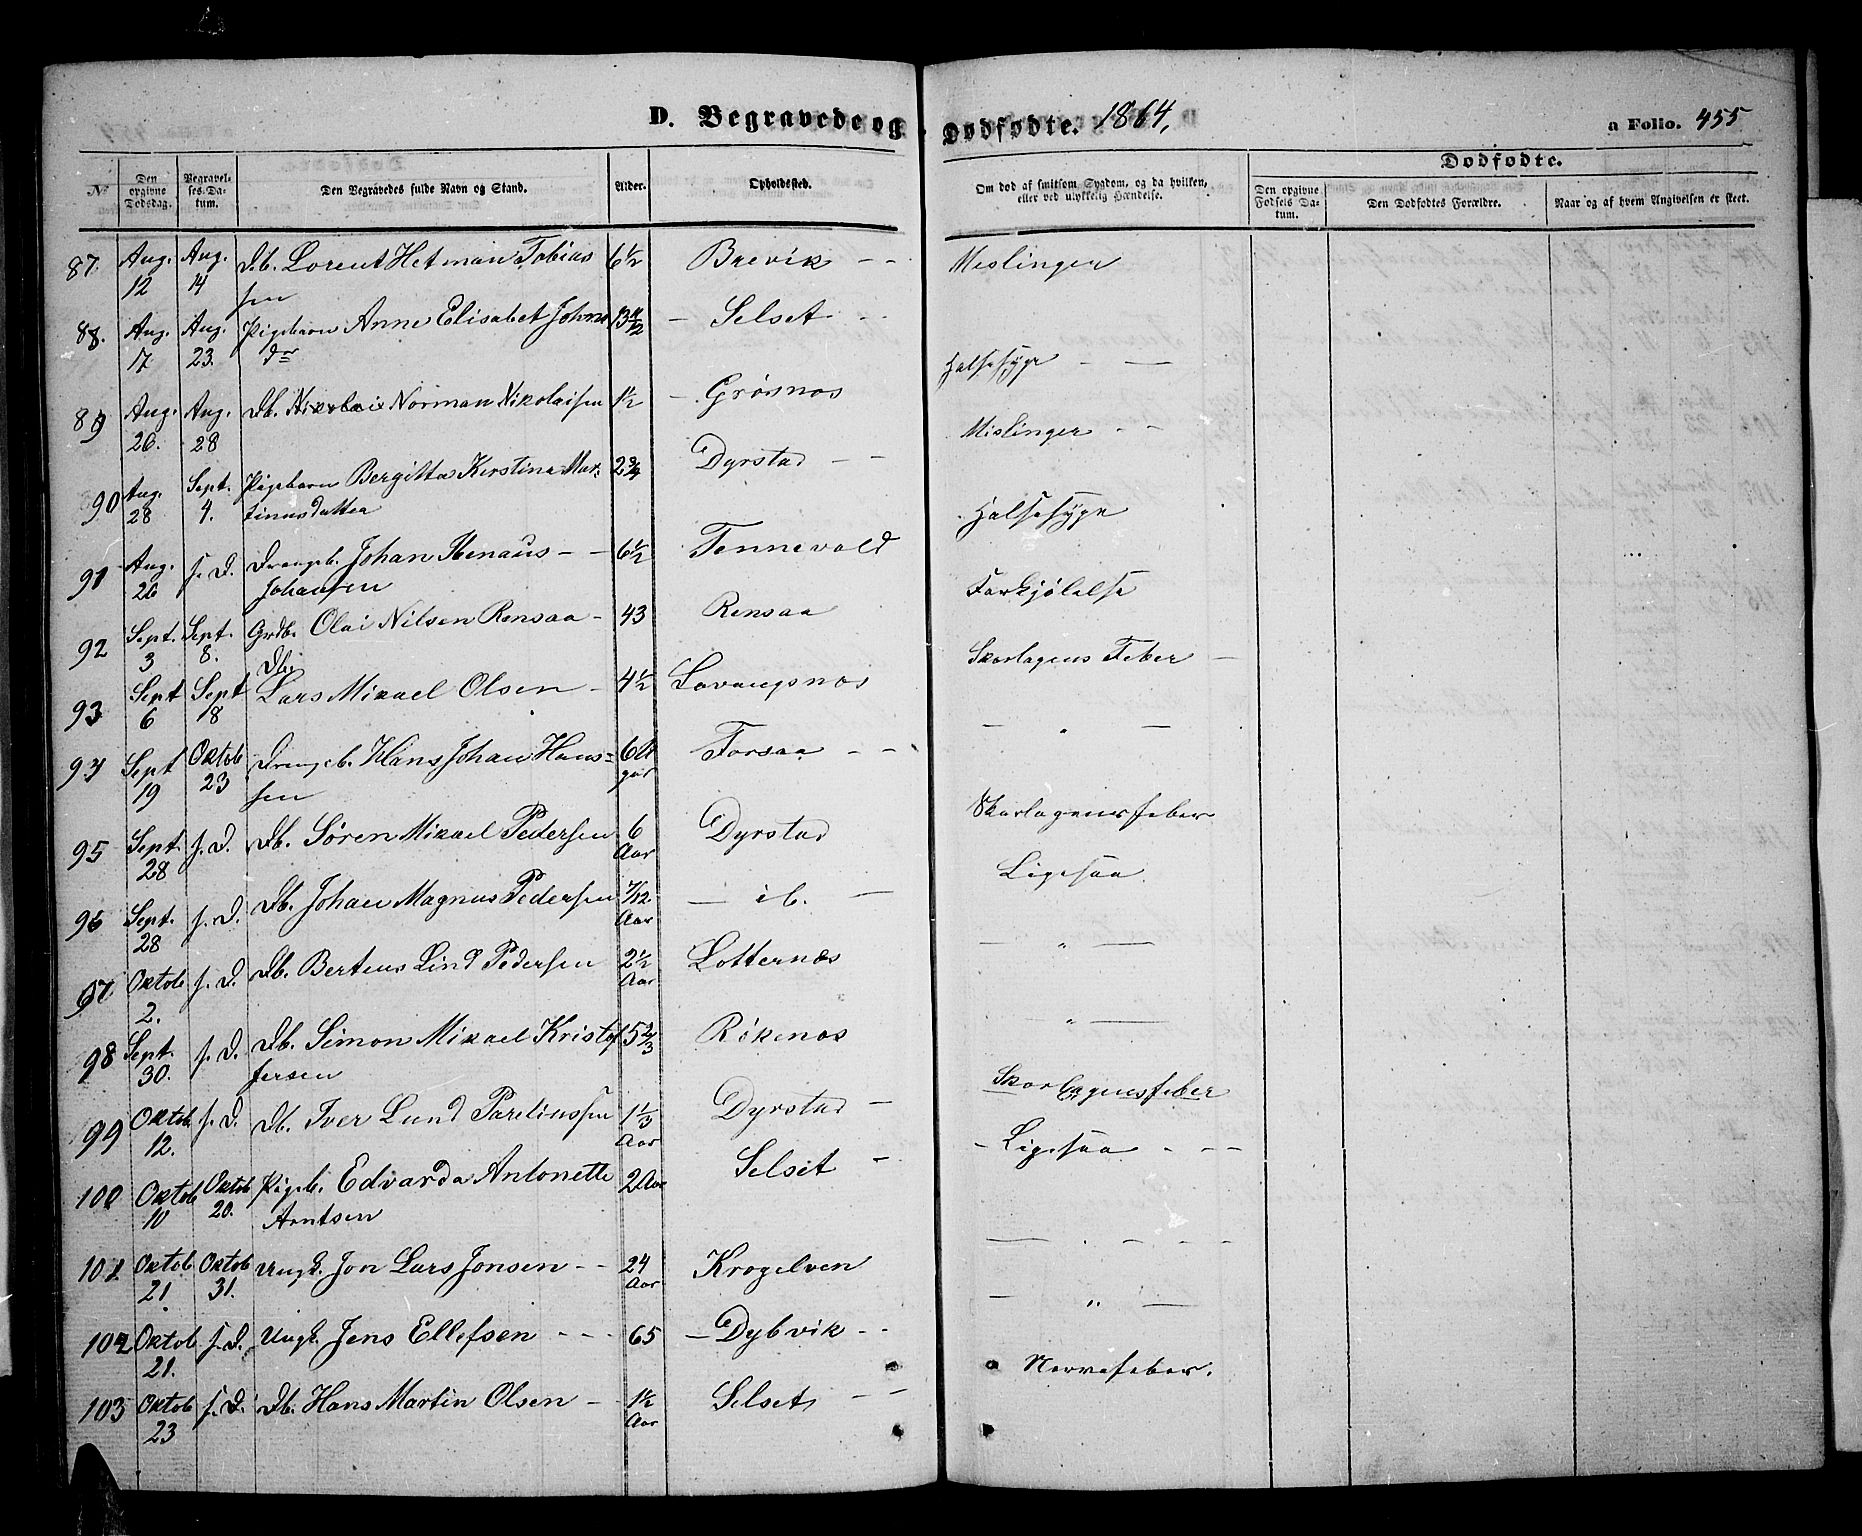 D. Begravede og Dødfødte. 1864, a Folio. 455
Dødfødte.
№ Den opgivne Dødsdag. Begravelses-Datum. Den Begravedes fulde Navn og Stand. Alder. Opholdssted. Om død af smitsom Sygdom, og da hvilken, eller ved ulykkelig Hændelse. Den opgivne Fødsels Datum. Den Dødfødtes Forældre. Naar og af hvem Angivelsen er skeet.
87. Aug. 12 Aug. 14 Db. Lorent Hetman Tobias 6½ Brevik - - Meslinger
sen
88. Aug. 17. Aug. 23. Pigebarn Anne Elisabet Johns 13 - Selset - -
dr Halsesyge - —
89 Aug. 26. Aug. 28 Db. Nikolai Norman Nikolaisen 1½ - Grøsnæs Mislinger - -
90 Aug. 28 Sept. 4. Pigebarn Bergitta Kirstina Mar- 2¾ Dyrstad - -
tinusdatter Halsesyge
91 Aug. 26 s. D. Drengeb. Johan Renaus - - 6½ Tennevold
Johansen Forkjølelse
92 Sept. 3 Sept. 8. Grdb. Olai Nilsen Rensaa - 43 Rensaa
93 Sept 6 Sept 18 Db. Lars Mikael Olsen - 4½ Lavangsnæs Skarlagens Feber —
94 Sept 19 Oktob 23 Drengeb. Hans Johan Hans= 6 Forsaa - - — " —
sen
95 Sept. 28 s. D. Db. Søren Mikael Pedersen 6 Aar Dyrstad Skarlagensfeber
96 Sept. 28 s. D. Db. Johan Magnus Pedersen 7/12. Aar — ib. — Ligesaa
97 Oktob 2. s. D. Db. Berteus Lind Pedersen 2½ Aar Lotternæs — " —
98 Sept. 30. s. D. Db. Simon Mikael Kristof 5⅔ Røkenæs " —
fersen
99 Oktob 12. s. D. Db. Iver Lund Pareliussen 1⅓ Aar Dyrstad - Skarlagensfeber
100 Oktob 10 Oktob 20. Pigeb. Edvarda Antonette 2 Aar Selset - - Ligesaa - - -
Arntsen
101 Oktob 21 Oktob 31. Ungk. Jon Lars Jonsen - - 24 Aar Krogelven — . - - -
102 Oktob 21. s. D. Ungk. Jens Ellefsen - - - 65 - Dybvik - - - " —
103 Oktob 23 s. D. Db. Hans Martin Olsen - 1½ Aar Selset - - Nervefeber.